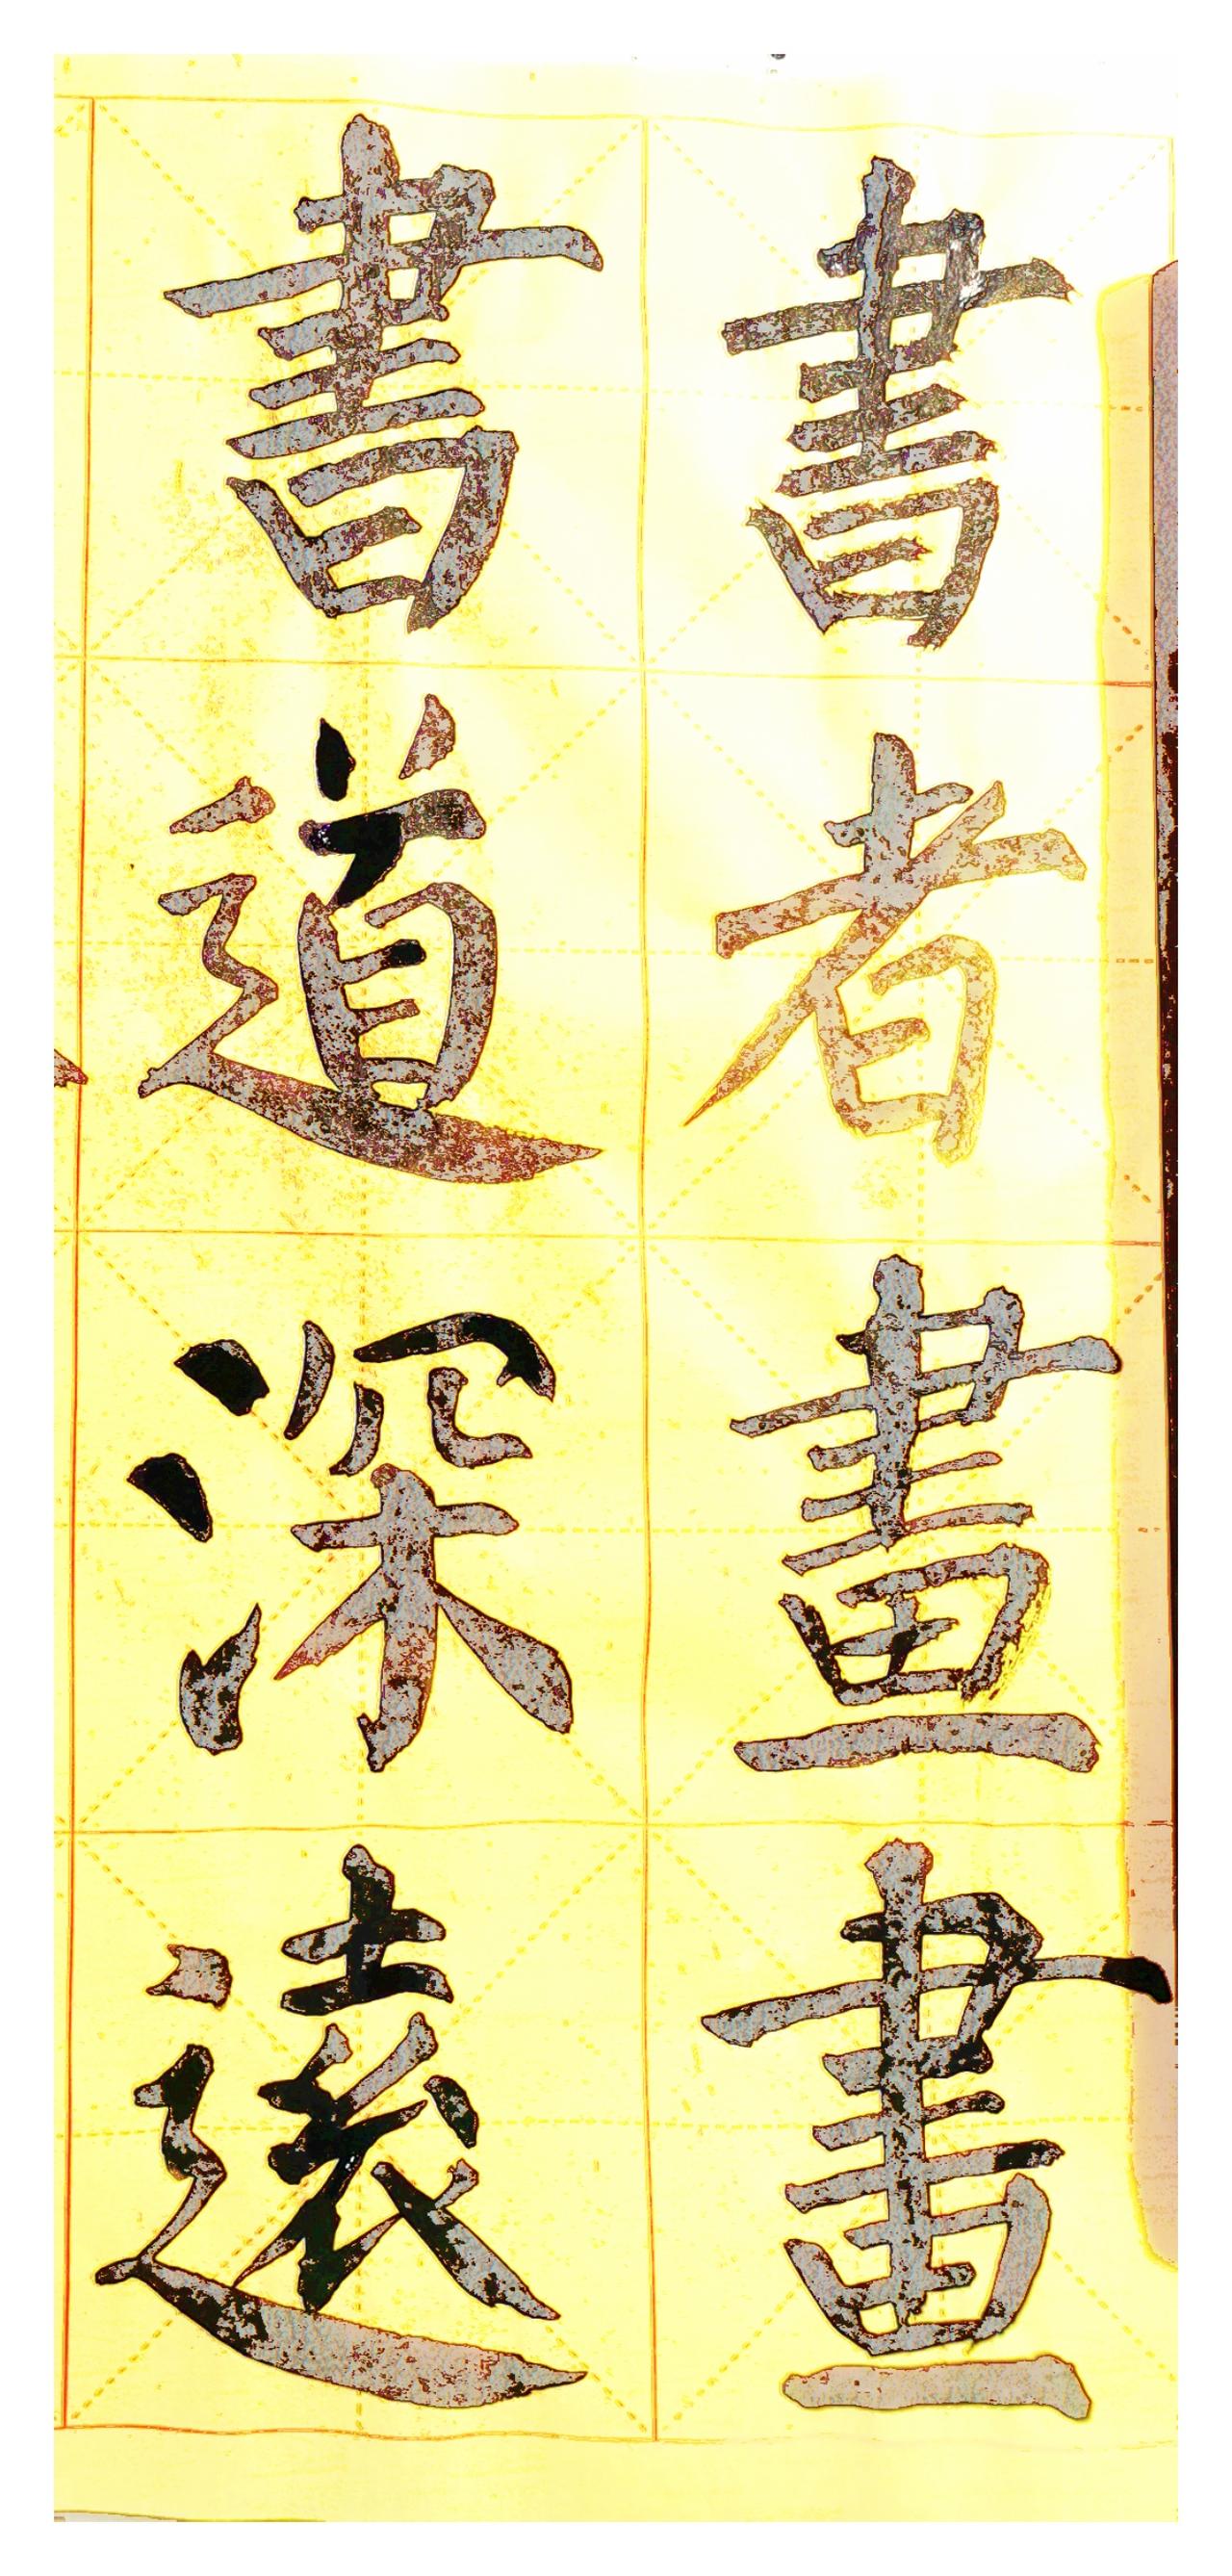 書者畫畫
書道深遠